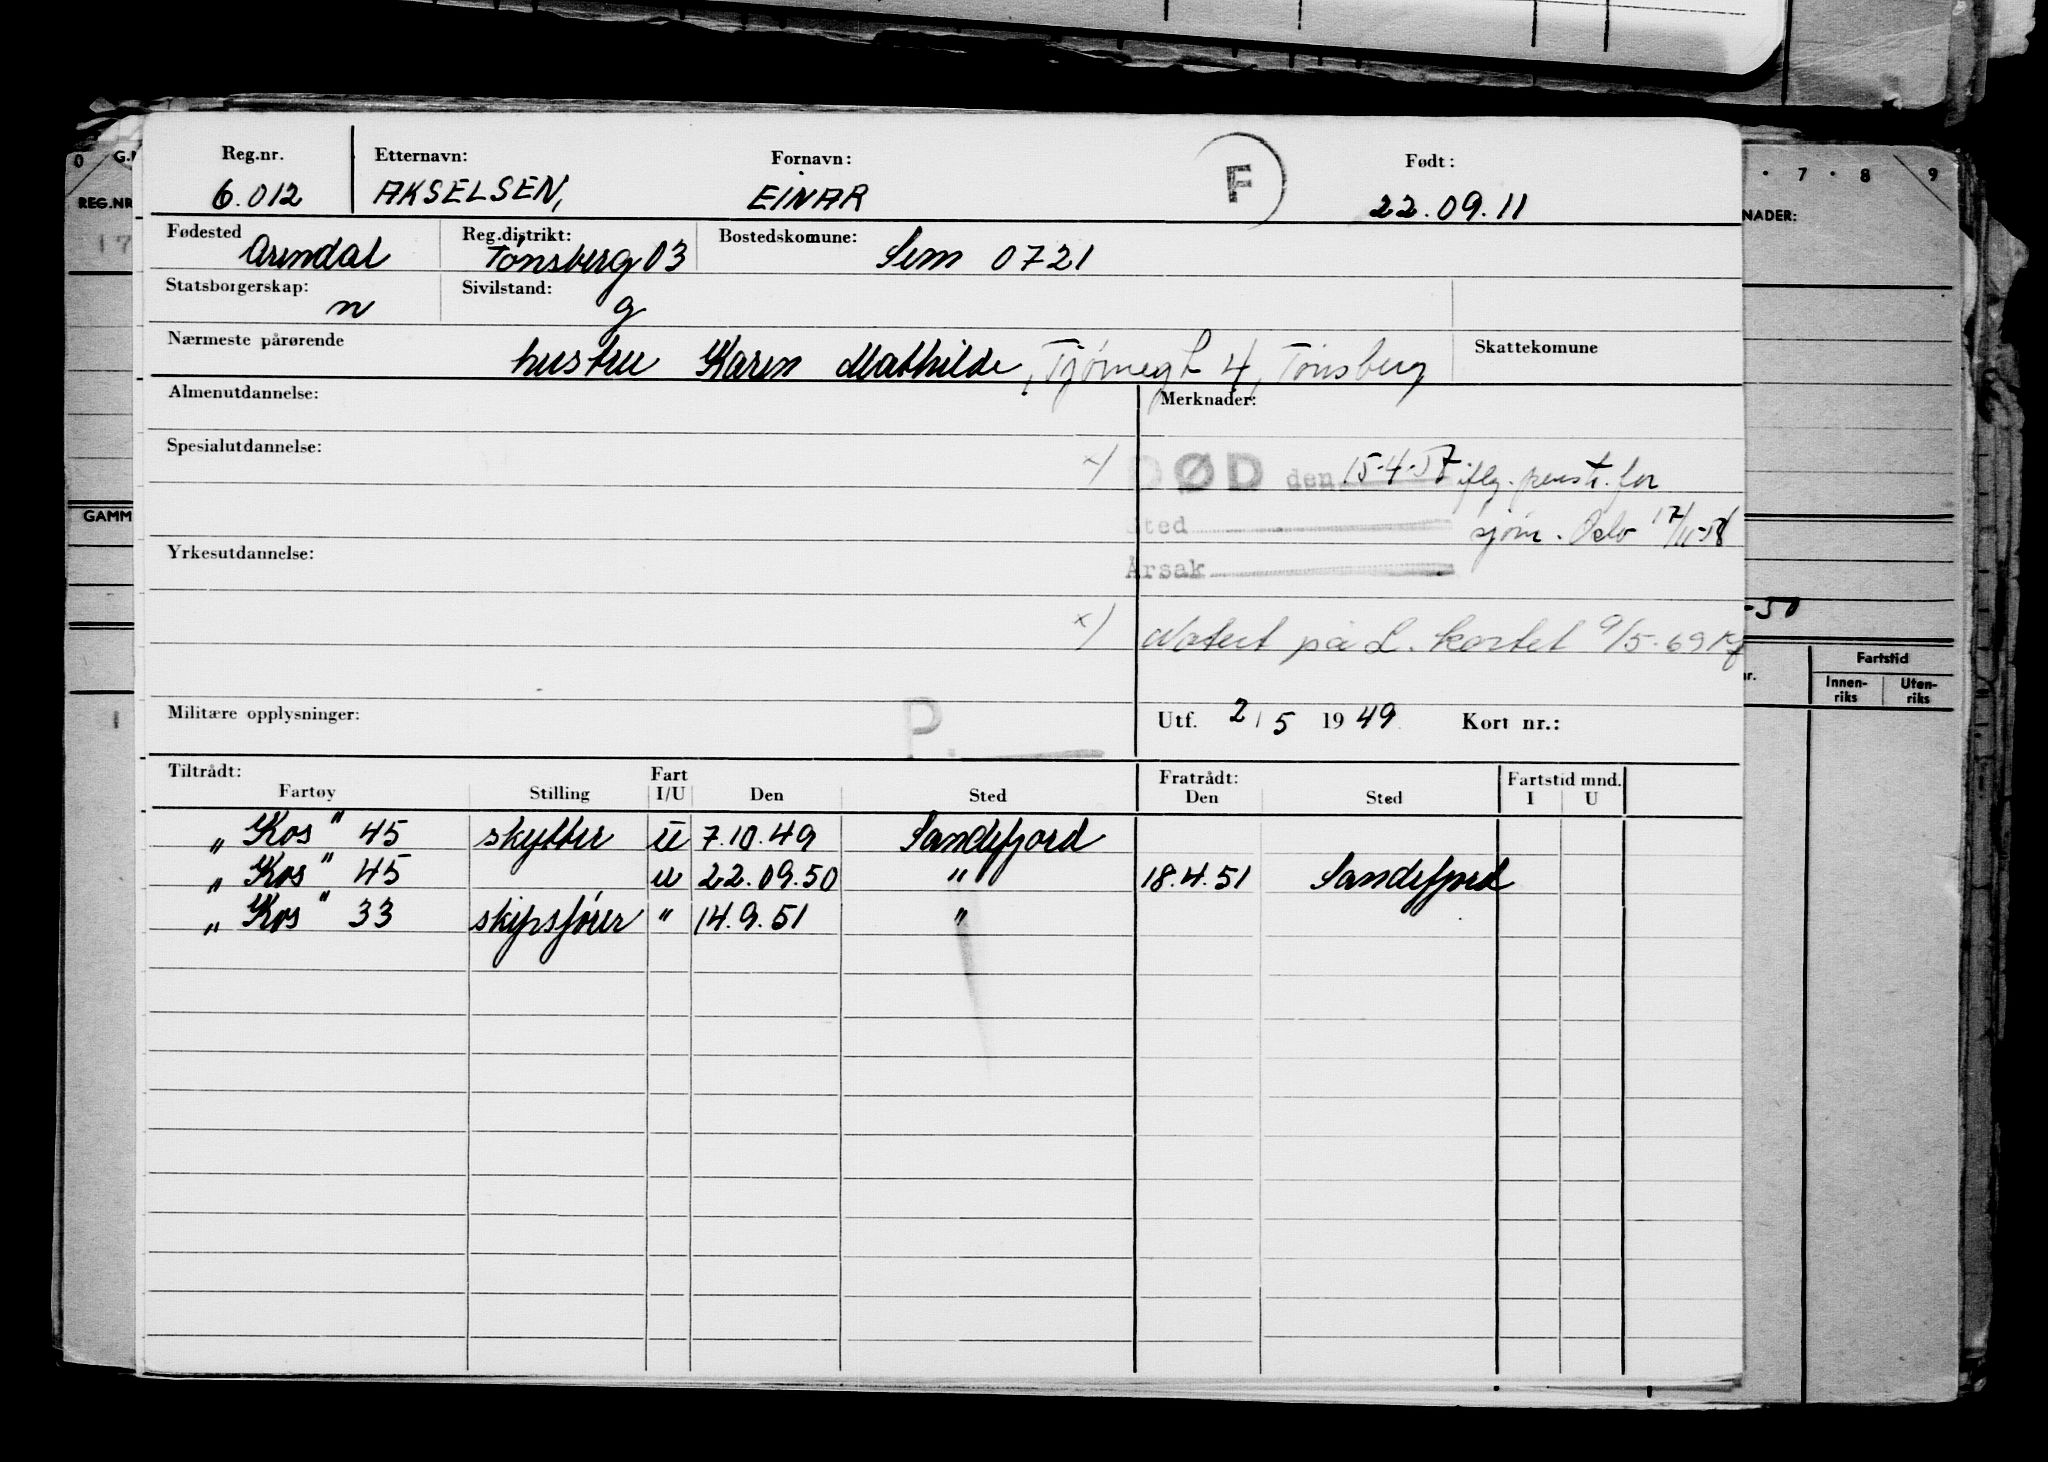 Reg.nr. Etternavn: Fornavn: F Født:
6.012 AKSELSEN, EINAR 22.09.11
Fødested Reg.distrikt: Bostedskomune:
Arendal Tønsberg 03 Sem 0721
Statsborgerskap: n Sivilstand: g
Nærmeste pårørende Skattekomune
hustru Karen Mathilde, Tjømegt 4, Tønsberg
Almenutdannelse: Merknader:
Spesialutdannelse:
x) DØD den 15-4-57 iflg. pensk. for
Sted sjøm. Oslo 17/11-58
Yrkesutdannelse:
Årsak
x) Notert på L. kortet 9/5-69
Militære opplysninger: P. Utf. 2/5 1949 Kort nr.:
Tiltrådt: Fart Fratrådt: Fartstid mnd.
Fartøy Stilling I/U Den Sted Den Sted I U
„Kos" 45 skytter u 7.10.49 Sandefjord
„Kos" 45 u 22.09.50 " 18.4.51 Sandefjord
„Kos" 33 skipsfører " 14.9.51 "
0 G.
REG.NR
17
GAMM
1
7 · 8 9
NADER:
-50
Fartstid
nr. Innen-riks Uten-riks